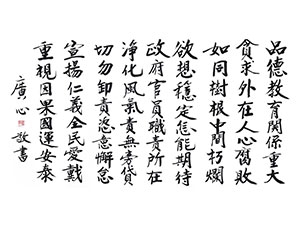 品德教育關係重大
貪求外在人心腐敗
如同樹根中間朽爛
欲想穩定怎能期待
政府官員職責所在
淨化風氣責無旁貸
切勿卸責恣意懈怠
宣揚仁義全民愛戴
重視因果國運安泰
廣心 敬書